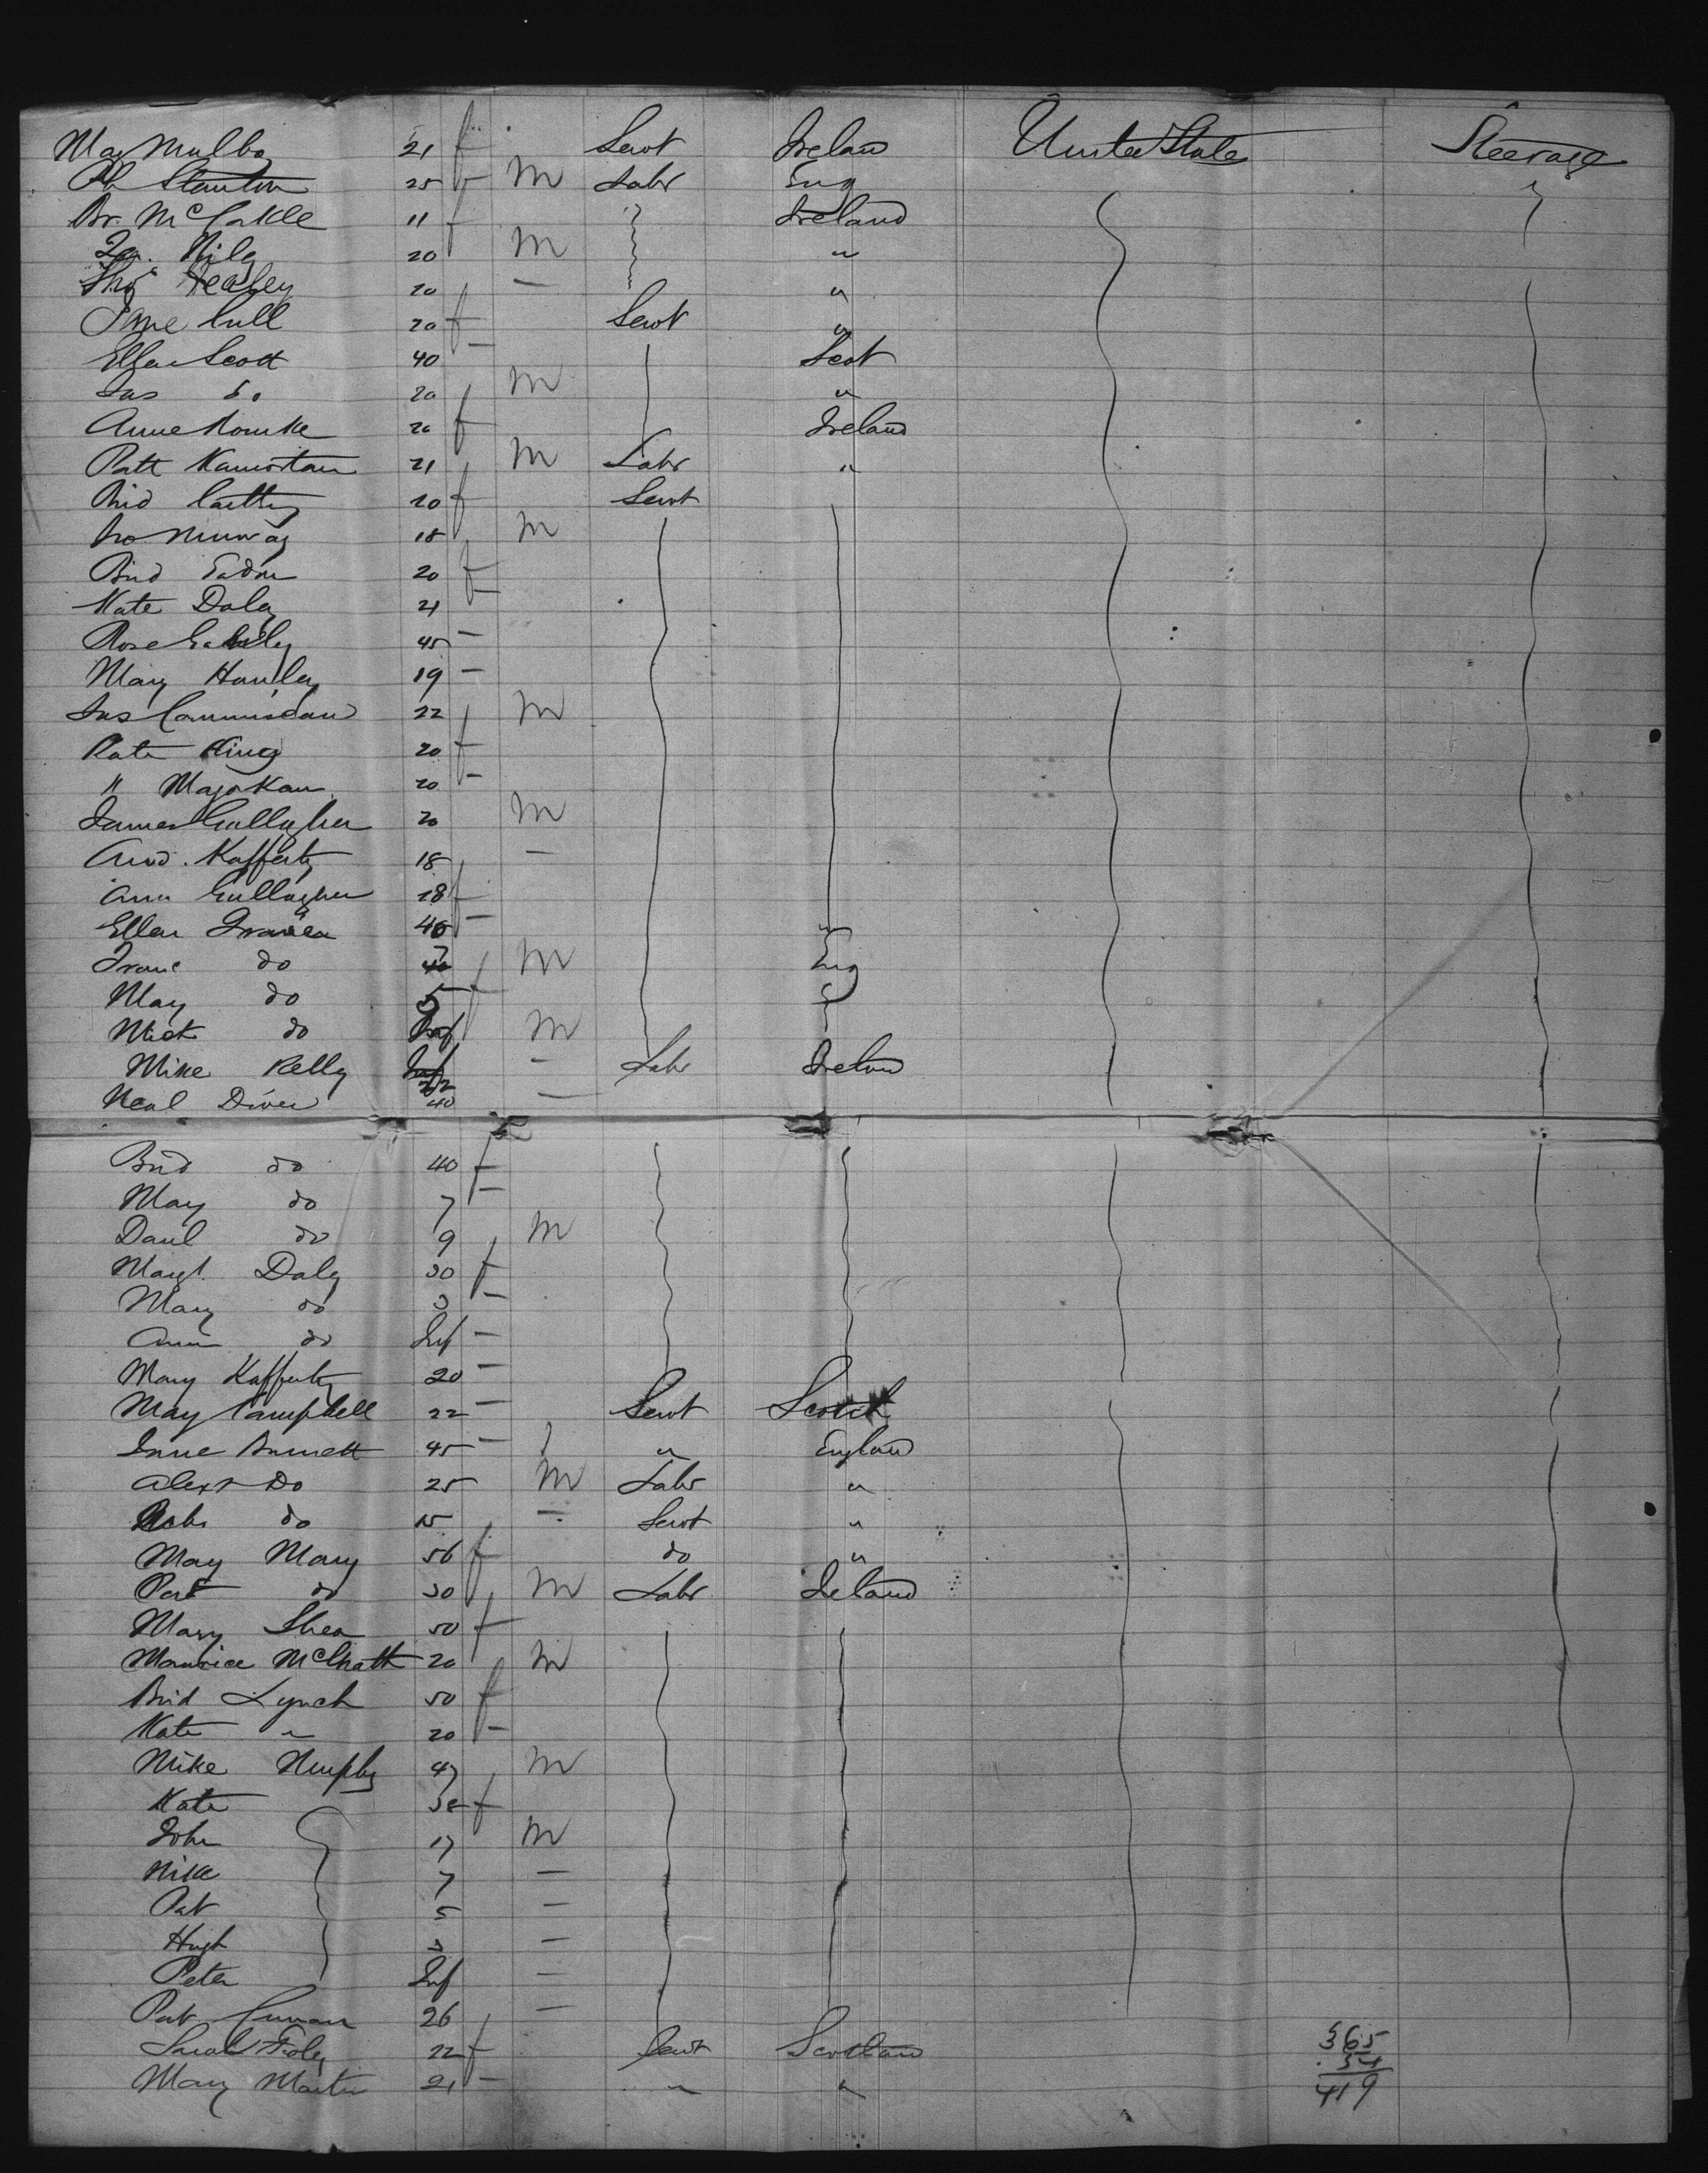 May Mulby 21 f Servt Ireland United State Steerage
Stanton 25 M Labr Eng
Br. McCorkle 11 f Ireland
20 M "
Thos 20 — "
Jane Cull 20 f Servt "
Ellen Scott 40 — Scot
Jas Do 20 M "
Anne Rourke 20 f Ireland
Patt 21 M Labr "
Brid 20 f Servt
18 M
Brid 20 f
Kate Daly 21 —
Rose 45 —
Mary Hanley 19 —
Jas 22 M
Kate King 20 f
" 20 —
James Gallagher 20 M
And. Rafferty 18 —
Ann Gallagher 18 f
Ellen 40 —
Franc do 7 M Eng
May do 5 f
Mick do Inf M
Mike Kelly 22 — Labr Ireland
Neal Diver 40 —
Brid do 40 f
May do 7 —
Danl do 9 M
Margt. Daly 30 f
Mary do 3 —
Ann do Inf —
Mary Rafferty 20 —
May Campbell 22 — Servt Scotch
Jane 45 — " England
Alexr Do 25 M Labr "
do 15 — Servt "
May Mary 56 f do "
Pat do 30 M Labr Ireland
Mary Shea 50 f
Maurice McGrath 20 M
Brid Lynch 50 f
Kate " 20 —
Mike Murphy 47 M
Kate 38 f
John 17 M
Mike 7 —
Pat 5 —
Hugh 3 —
Peter Inf —
Pat 26 —
Sarah Foley 22 f Servt Scotland
Mary Martin 21 — " "
365
54
419